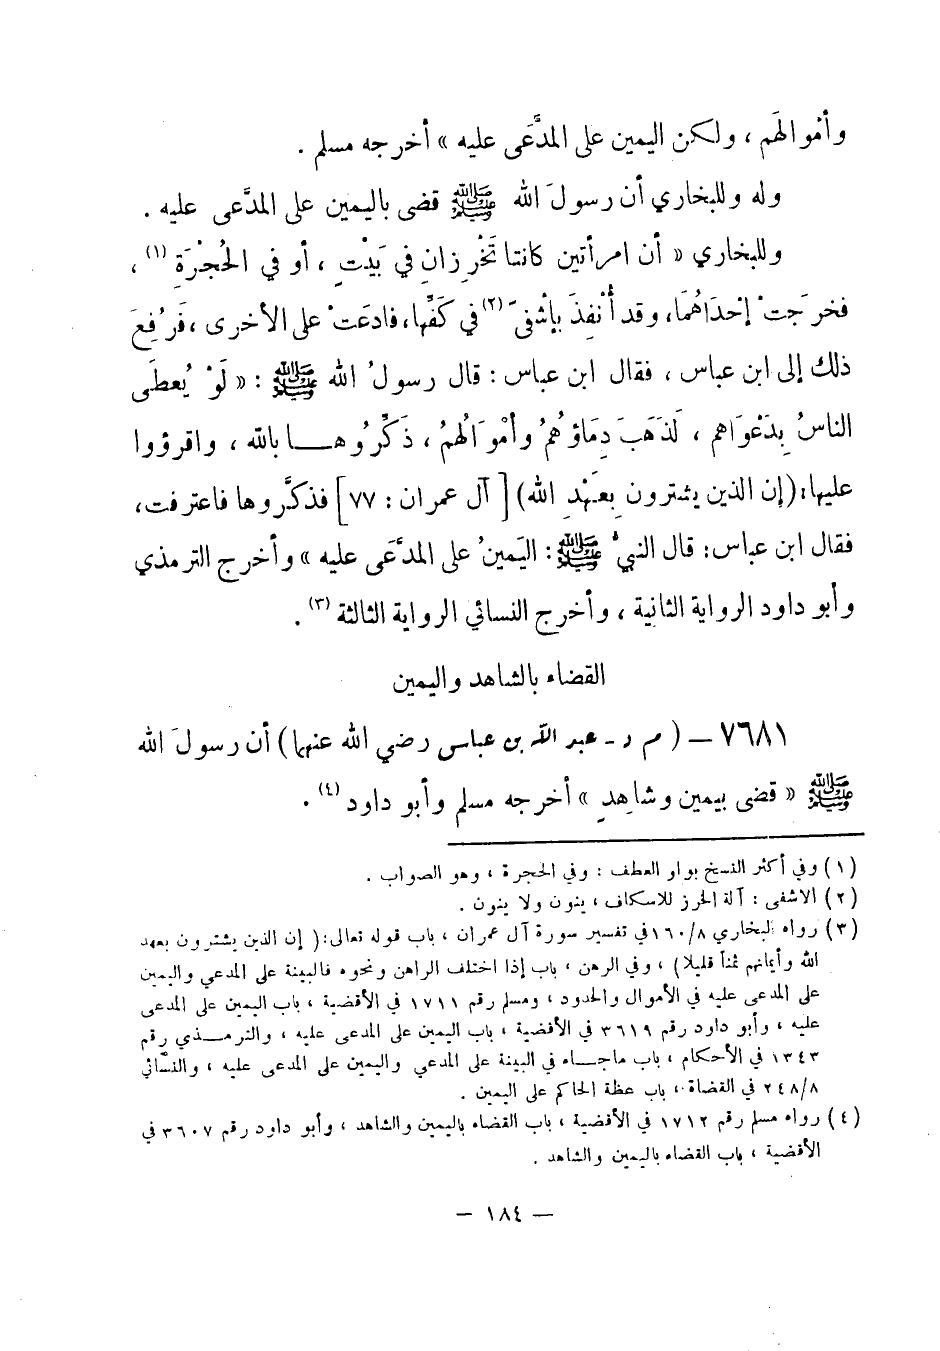 وأمْوالهَم ، ولكن اليمين على المدَّعَى عليه » أخرجه مسلم .
وله وللبخاري أن رسولَ الله ﷺ قضى باليمين على المدَّعى عليه .
وللبخاري « أن امرأتين كانتا تَخْرِزانِ في بَيْتٍ ، أو في الحُجْرَةِ (١) ،
فخرَجَتْ إحْدَاهُمَا، وقد أُنْفِذَ بإشْفىً (٢) في كَفِّها، فادعَتْ على الأخرى ، فَرُفِعَ
ذلك إلى ابن عباس ، فقال ابن عباس : قال رسولُ الله ﷺ : « لَوْ يُعطَى
الناسُ بِدَعْوَاهم ، لَذَهَبَ دِمَاؤهُمُ وأمْوَالُهمُ ، ذَكِّرُوهــا بالله ، واقرؤوا
عليها: (إن الذين يشترون بِعَهْدِ الله) [ آل عمران : ٧٧ ] فذكَّروها فاعترفت،
فقال ابن عباس: قال النبيُّ ﷺ : اليَمينُ على المدَّعَى عليه » وأخرج الترمذي
وأبو داود الرواية الثانية ، وأخرج النسائي الرواية الثالثة (٣) .
القضاء بالشاهد واليمين
٧٦٨١ – ( م د - عبد الله بن عباس رضي الله عنهما ) أن رسولَ الله
ﷺ « قضى بيمين وشاهِدٍ » أخرجه مسلم وأبو داود (٤) .
(١) وفي أكثر النسخ بواو العطف : وفي الحجرة ، وهو الصواب .
(٢) الاشفى : آلة الخرز للاسكاف ، ينون ولا ينون .
(٣) رواه البخاري ١٦٠/٨ في تفسير سورة آل عمران ، باب قوله تعالى: ( إن الذين يشترون بعهد
الله وأيمانهم ثمناً قليلا ) ، وفي الرهن ، باب إذا اختلف الراهن ونحوه فالبينة على المدعي واليمين
على المدعى عليه في الأموال والحدود ، ومسلم رقم ١٧١١ في الأقضية ، باب اليمين على المدعى
عليه ، وأبو داود رقم ٣٦١٩ في الأقضية ، باب اليمين على المدعى عليه ، والترمــذي رقم
١٣٤٣ في الأحكام ، باب ماجــاء في البينة على المدعي واليمين على المدعى عليه ، والنسّائي
٢٤٨/٨ في القضاة ، باب عظة الحاكم على اليمين .
(٤) رواه مسلم رقم ١٧١٢ في الأقضية ، باب القضاء باليمين والشاهد ، وأبو داود رقم ٣٦٠٧ في
الأقضية ، باب القضاء باليمين والشاهد .
– ١٨٤ –